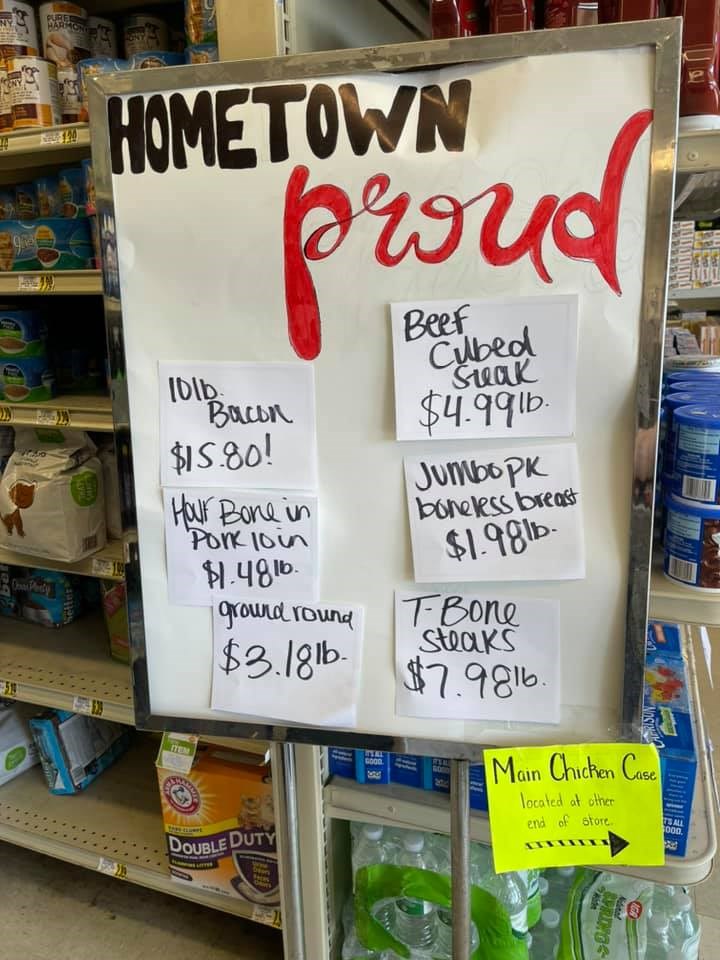 HOMETOWN
proud
Beef
Cubed
Steak
$4.99lb.
10lb.
Bacon
$15.80!
Jumbo pk
boneless breast
$1.98lb.
Half Bone in
Pork loin
$1.48lb.
ground round
$3.18lb.
T-Bone
Steaks
$7.98lb.
Main Chicken Case
located at other
end of store.
PURE
HARMONY
ITEM
ARM & HAMMER
DOUBLE DUTY
IT'S ALL
GOOD.
IGA
SPRING